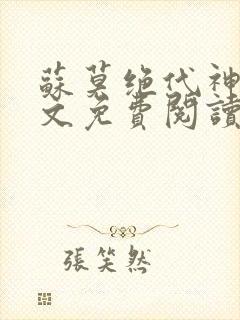 蘇莫絕代神
文免費閱讀
張笑然